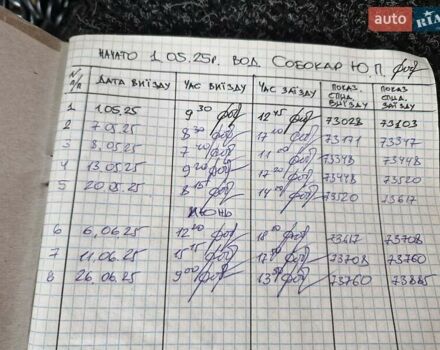 auto RIA
НАЧАТО 1.05.25г. ВОД. СОБОКАР Ю.П.
N/П/П ДАТА ВИЇЗДУ ЧАС ВИЇЗДУ ЧАС ЗАЇЗДУ ПОКАЗ. СПИД. ВИЇЗДУ ПОКАЗ. СПИД. ЗАЇЗДУ
1 1.05.25 9 30 12 45 73028 73103
2 7.05.25 8 30 17 10 73171 73347
3 8.05.25 7 40 11 00 73348 73448
4 13.05.25 9 20 17 20 73448 73520
5 20.05.25 8 15 14 20 73520 73617
ИЮНЬ
6 6.06.25 12 20 18 20 73617 73708
7 11.06.25 15 15 17 50 73708 73760
8 26.06.25 9 00 13 50 73760 73885